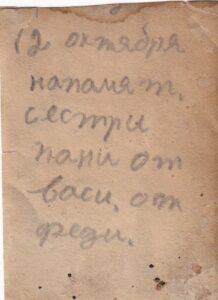 12 октября
напамят.
сестры
пани от
васи. от
феди.